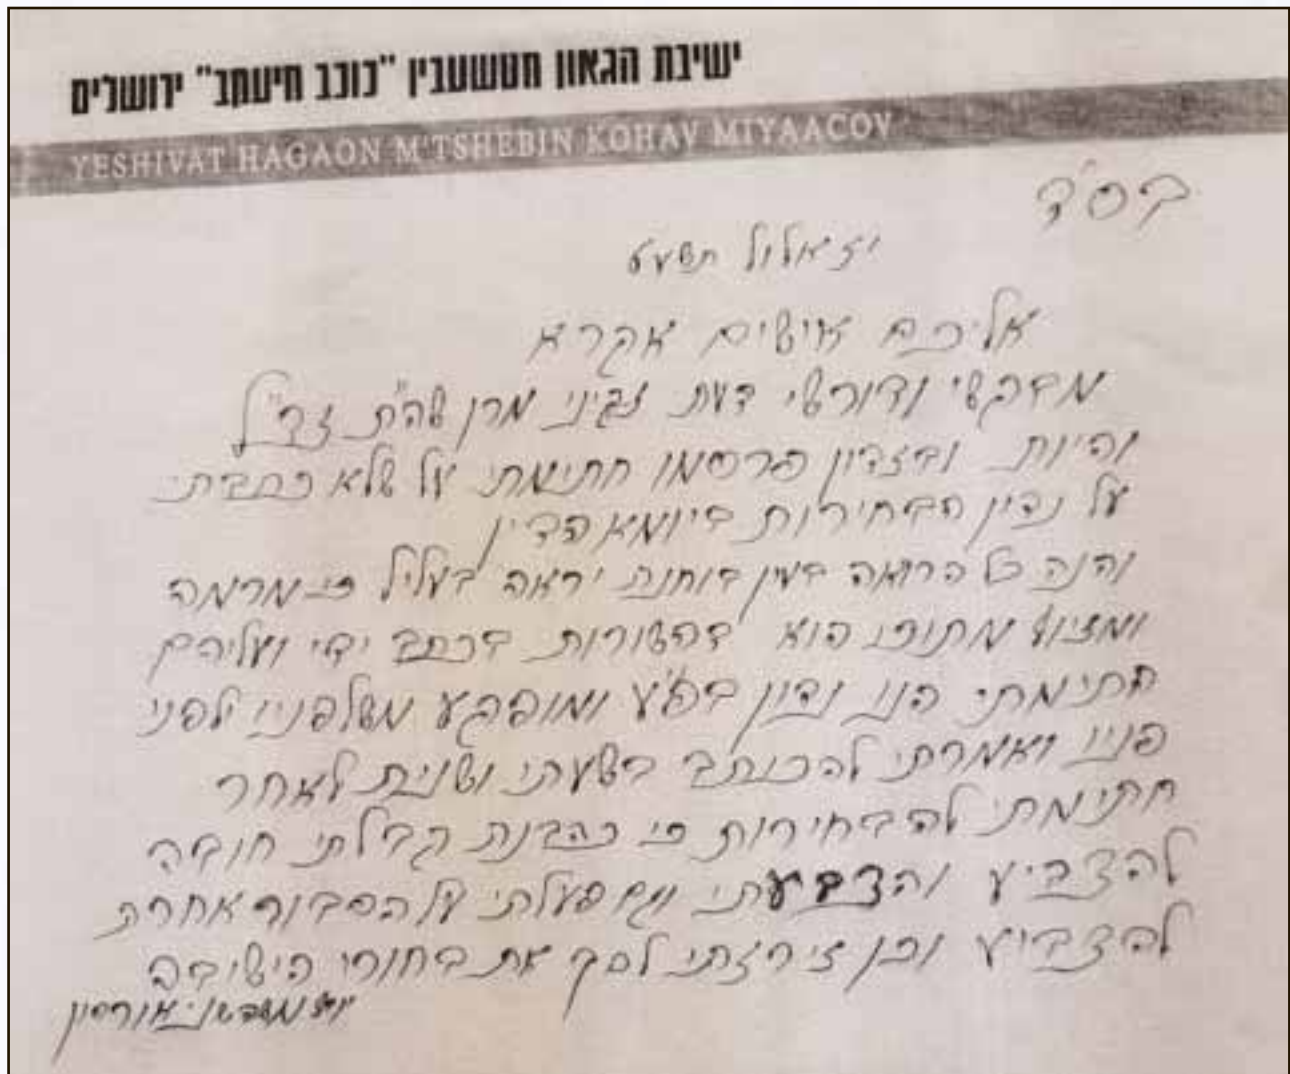 ישיבת הגאון מטשעבין "כוכב מיעקב" ירושלים
YESHIVAT HAGAON M'TSHEBIN KOHAV MIYAACOV
בס"ד
יז אלול תשעט
אליכם אישים אקרא
מבקשי ודורשי דעת זקיני מרן שה"ת זצ"ל
והיות ובזדון פרסמו חתימתי על שלא כתבתי
על נדון הבחירות ביומא הדין
והנה כל הרואה בעין בוחנת יראה בעליל כי מרמה
ומזויף מתוכו הוא דהשורות בכתב ידי ועליהם
חתימתי הנו נדון ומופקע משלפניו ולפני
פניו ואמרתי להכותב בשעתו ושנית לאחר
חתימתי להבחירות כי כהבנת קבלתי חובה
להצביע והצבעתי וגם פעלתי על הסבור אחרת
להצביע וכן זירזתי לסך את בחורי הישיבה